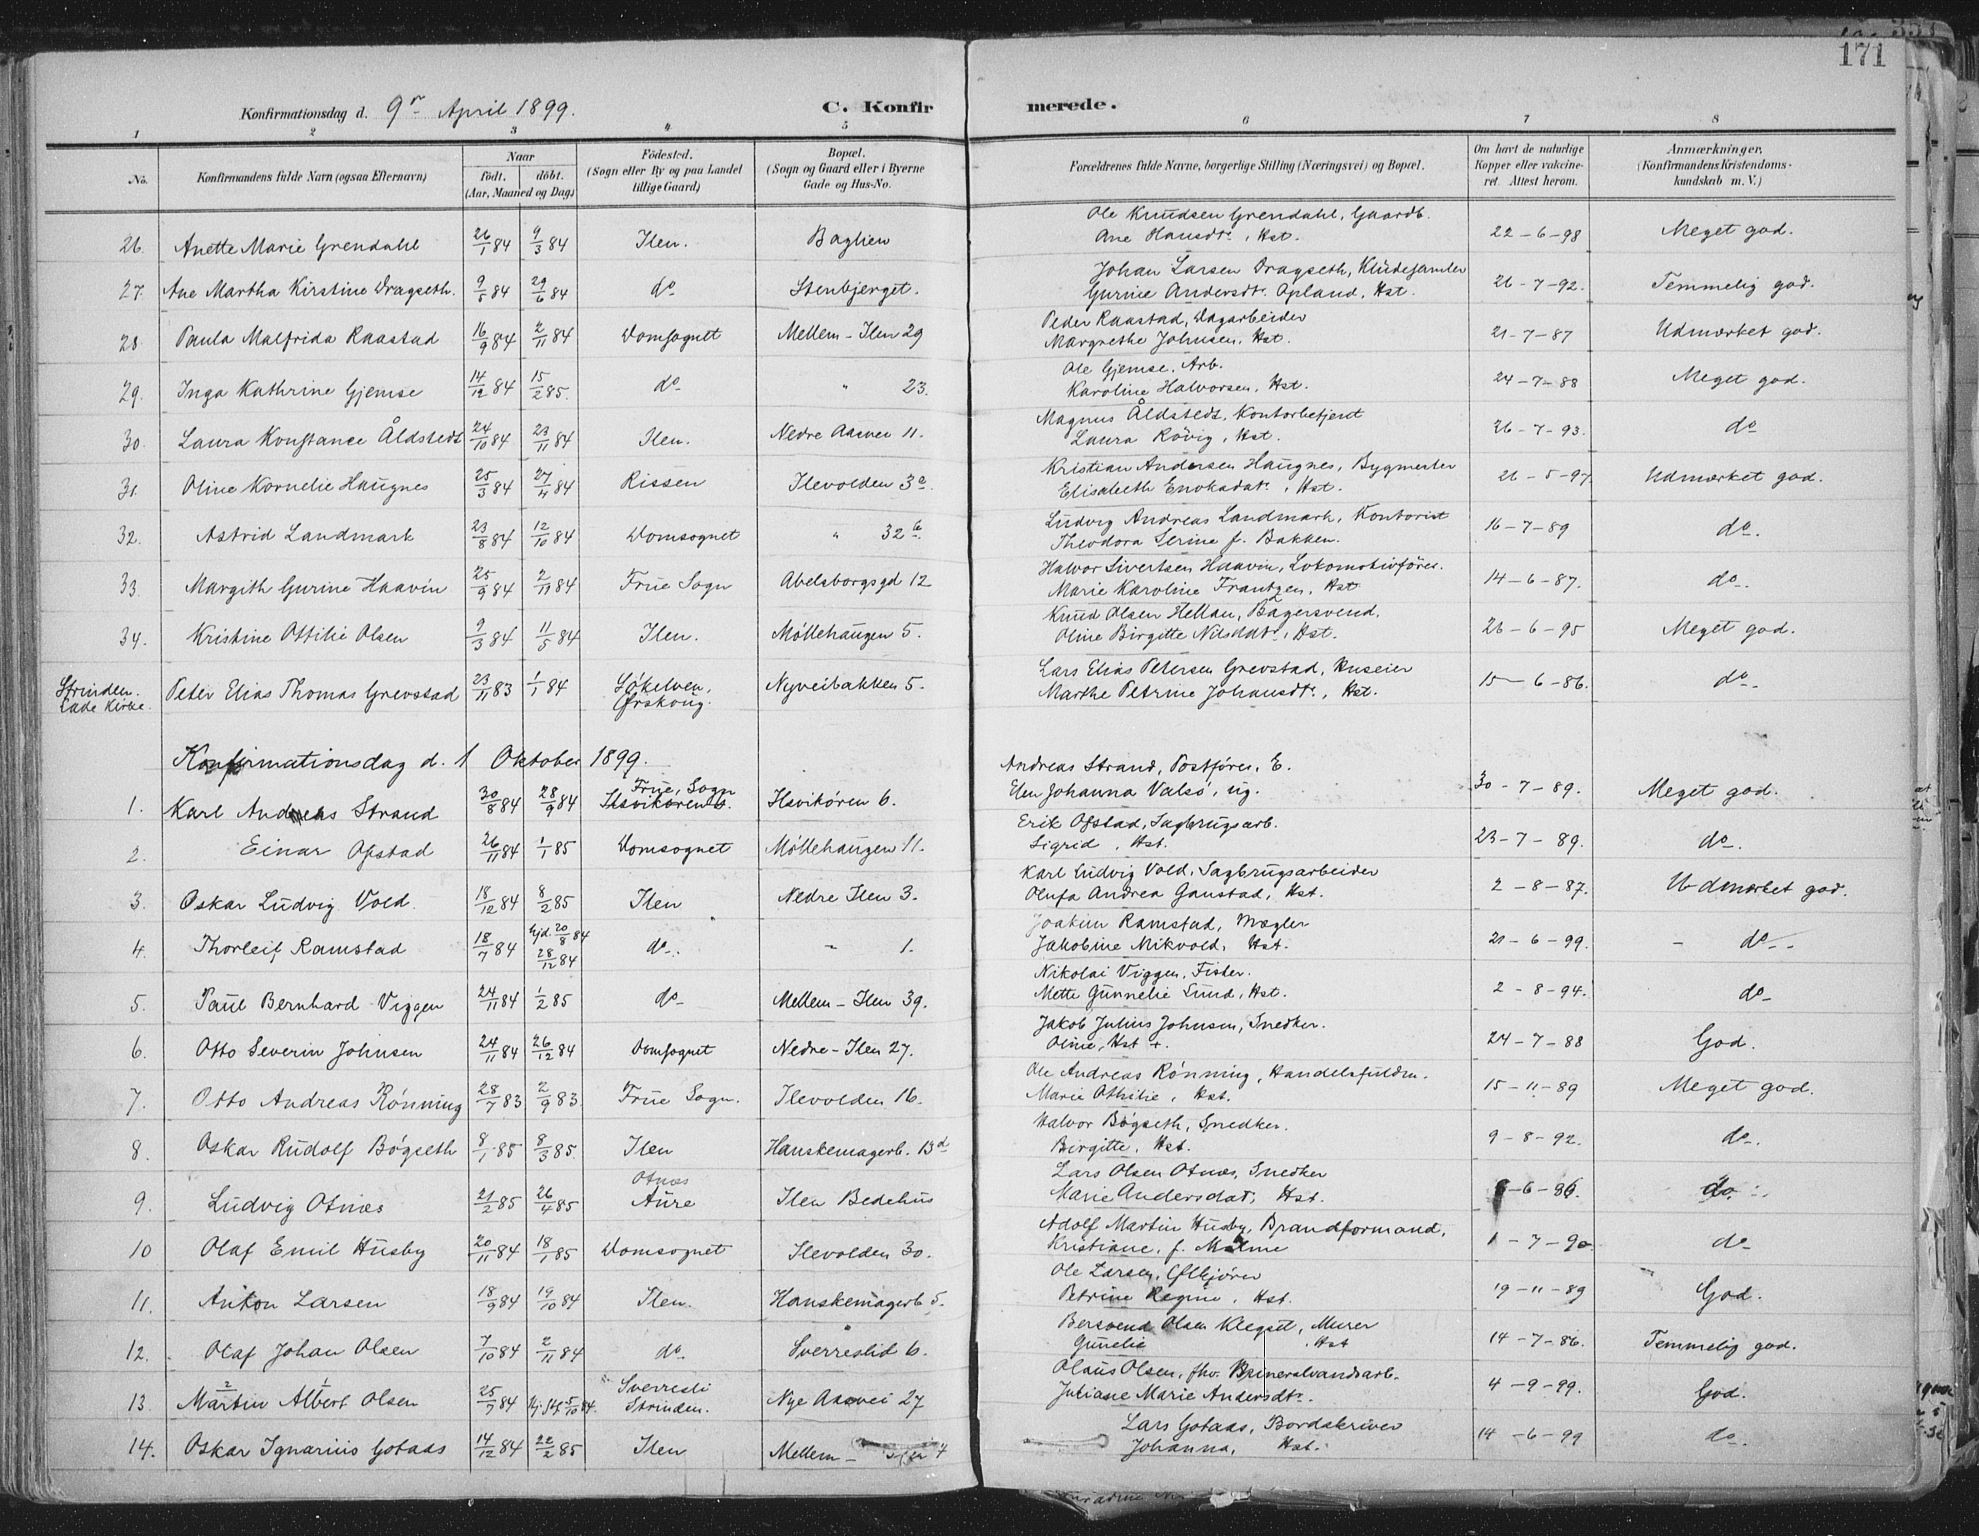 171
Konfirmationsdag d. 9de April 1899. C. Konfirmerede.
1 2 3 4 5 6 7 8
No. Konfirmandens fulde Navn (ogsaa Efternavn) Naar født. døbt. (Aar, Maaned og Dag) Fødested. (Sogn eller By og paa Landet tillige Gaard) Bopæl. (Sogn og Gaard eller i Byerne Gade og Hus-No. Forældrenes fulde Navne, borgerlige Stilling (Næringsvei) og Bopæl. Om havt de naturlige Kopper eller vaccineret. Attest herom. Anmærkninger. (Konfirmandens Kristendomskundskab m. V.)
26. Anette Marie Grendahl 26/1 84 9/3 84 Ilen. Baglien Ole Knudsen Grendahl, Gaardb. Ane Hansdtr, Hst. 22-6-98 Meget god.
27. Ane Martha Kirstine Dragseth. 9/5 84 29/6 84 do Stenbjerget. Johan Larsen Dragseth, Kludesamler Gurine Andersdtr. Opland, Hst. 26-7-92. Temmelig god.
28. Paula Malfrida Raastad 16/9 84 2/11 84 Domsognet Mellem-Ilen 29 Peder Raastad, Dagarbeider Margrethe Johnsen, Hst. 21-7-87 Udmærket god.
29. Inga Kathrine Gjemse 14/12 84 15/2 85. do " 23. Ole Gjemse, Arb. Karoline Halvorsen, Hst. 24-7-88 Meget god.
30. Laura Konstance Åldstedt 24/10 84 23/11 84 Ilen. Nedre Aasvei 11. Magnus Åldstedt, Kontorbetjent Laura Rövig, Hst. 26-7-93. do
31. Oline Kornelie Haugnes 25/3 84 27/4 84 Rissen Ilevolden 3a. Kristian Andersen Haugnes, Bygmester Elisabeth Enoksdatr, Hst. 21-5-97 Udmærket god.
32. Astrid Landmark 23/8 84 12/10 84 Domsognet " 32b. Ludvig Andreas Landmark, Kontorist Theodora Serine f. Bakken. 16-7-89 do.
33. Margith Gurine Haavin 25/9 84 2/11 84 Frue Sogn Abelsborgsgd 12 Halvor Sivertsen Haavin, Lokomotivförer. Marie Karoline Frantzen, Hst 14-6-87. do.
34. Kristine Ottilie Olsen 9/3 84 11/5 84 Ilen. Möllehaugen 5. Knud Olsen Hellan, Bagersvend. Oline Birgitte Nilsdtr, Hst. 26-6-95 Meget god.
Strinden. Lade Kirke. Peter Elias Thomas Grevstad 23/11 83 1/1 84 Sökelven, Ørskoug. Nyveibakken 5. Lars Elias Petersen Grevstad, Huseier Marthe Petrine Johansdtr, Hst. 15-6-86. do.
Konfirmationsdag d. 1 Oktober 1899.
1. Karl Andreas Strand 30/8 84 28/9 84 Frue, Sogn Ilsvikören 6. Ilsvikören 6. Andreas Strand, Postförer, E. Elen Johanna Valsö, ug. 30-7-89. Meget god.
2. Einar Ofstad 26/11 84 1/1 85 Domsognet Möllehaugen 11. Erik Ofstad, Sagbrugsarb. Sigrid, Hst. 23-7-89. do.
3. Oskar Ludvig Vold 18/12 84 8/2 85 Ilen Nedre Ilen 3. Karl Ludvig Vold, Sagbrugsarbeider Olufa Andrea Ganstad, Hst. 2-8-87. Udmærket god.
4. Thorleif Ramstad 18/7 84 hjd. 20/8 84 28/12 84 do. " 1. Joakim Ramstad, Mægler Jakobine Mikvold, Hst. 21-6-99. - do -
5. Paul Bernhard Viggen 24/11 84 1/2 85 do Mellem-Ilen 39. Nikolai Viggen, Fisker. Mette Gunnelie Lund, Hst. 2-8-94. do
6. Otto Severin Johnsen 24/11 84 26/12 84 Domsognet Nedre-Ilen 27. Jakob Julius Johnsen, Snedker. Oline, Hst +. 24-7-88 God.
7. Otto Andreas Rönning 28/7 83 2/9 83. Frue Sogn. Ilevolden 16. Ole Andreas Rönning, Handelsfuldm. Marie Othilie, Hst. 15-11-89 Meget god.
8. Oskar Rudolf Bögseth 8/1 85 8/3 85. Ilen Hanskemagerb. 13d Halvor Bögseth, Snedker. Birgitte, Hst. 9-8-92. do.
9. Ludvig Otnes 21/2 85 26/4 85 Otnæs Aure Ilen Bedehus Lars Olsen Otnæs, Snedker Marie Andersdat, Hst. -6-96. do.
10 Olaf Emil Husby 20/11 84 18/1 85 Domsognet Ilevolden 30. Adolf Martin Husby, Brandformand, Kristiane, f. Malme 1-7-90 do
11. Anton Larsen 18/9 84 19/10 84 Ilen. Hanskemagerb 5. Ole Larsen, Ølkjörer Petrine Regine, Hst. 19-11-89 God.
12. Olaf Johan Olsen 7/10 84 2/11 84 do. Sverreslid 6. Bersvend Olsen Klegset, Murer Gunelie, Hst 14-7-86. Temmelig god.
13. Martin Albert Olsen 25/7 84 5/10 84. Sverresli Strinden. Nye Aasvei 27 Olaus Olsen, fhv. Mineralvandsarb. Juliane Marie Andersdtr. 4-9-99. God.
14. Oskar Ignarius Gotaas 14/12 84 22/2 85 Ilen Mellem- 4 Lars Gotaas, Bordskriver Johanna, Hst. 14-6-99 do.